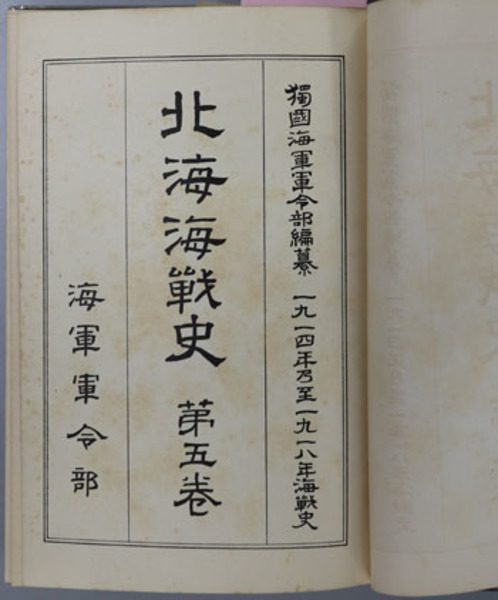 獨國海軍軍令部編纂 一九一四年乃至一九一八年海戰史
北海海戰史 第五卷
海軍軍令部